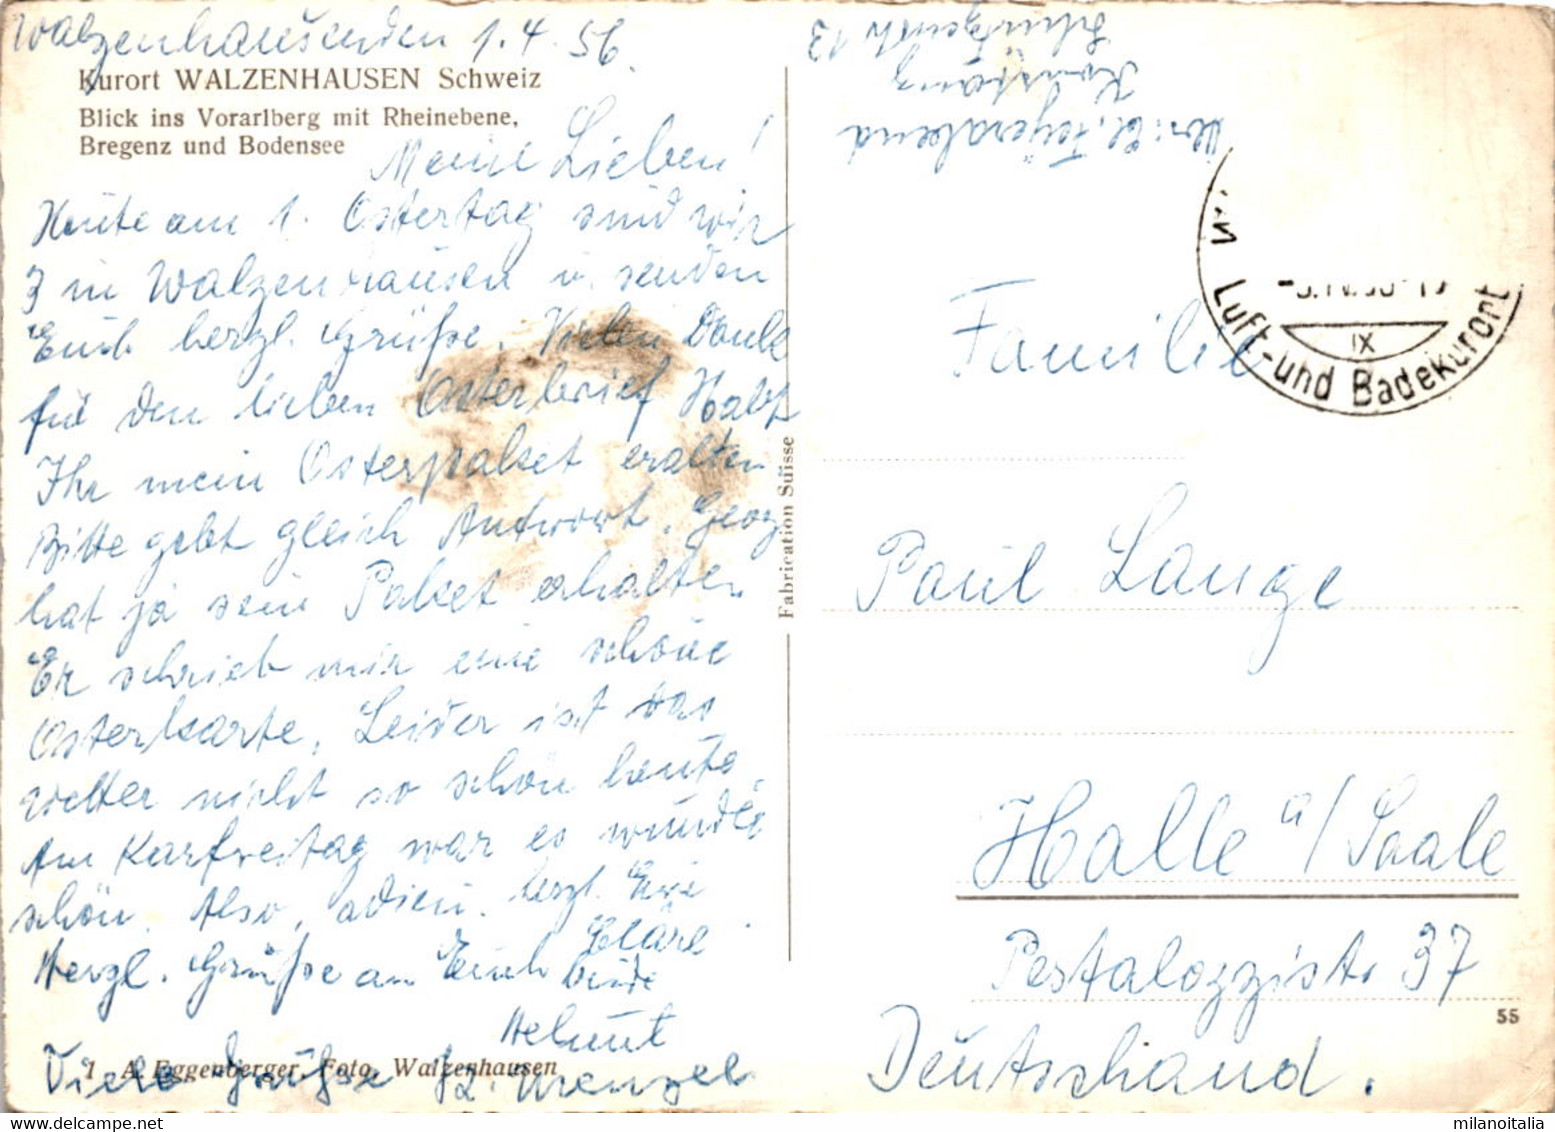 Walzenhausenden 1.4.56.
Kurort WALZENHAUSEN Schweiz
Blick ins Vorarlberg mit Rheinebene,
Bregenz und Bodensee
Meine Lieben!
Heute am 1. Ostertag sind wir
3 in Walzenhausen u. senden
Euch herzl. Grüße. Vielen Dank
für den lieben Osterbrief Habt
Ihr mein Osterpaket eralten
Bitte gebt gleich Antwort. Georg
hat ja sein Paket erhalten
Er schrieb mir eine schöne
Osterkarte, Leider ist das
Wetter nicht so schön heute.
Am Karfreitag war es wunder
schön. Also, adieu. herzl. Eure
Cläre
Herzl. Grüße an Euch beide
Helmut
Viele Grüße Menzel
1 A. Eggenberger, Foto, Walzenhausen
Fabrication Suisse
Feyerabend
Konstanz
13
Luft- und Badekurort
IX
Familie
Paul Lange
Halle a/Saale
Pestalozzistr 37
55
Deutschland.
milanoitalia